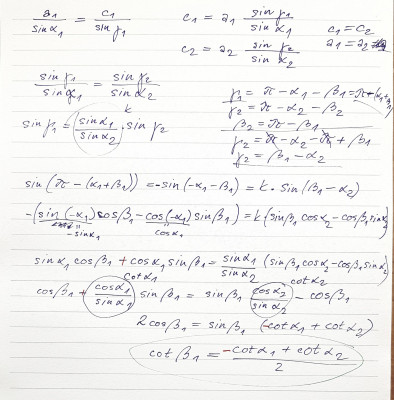 a₁/sin α₁ = c₁/sin γ₁
c₁ = a₁ sin γ₁/sin α₁
c₁ = c₂
c₂ = a₂ sin γ₂/sin α₂
a₁ = a₂
sin γ₁/sin α₁ = sin γ₂/sin α₂
γ₁ = π - α₁ - β₁ = π - (α₁ + β₁)
γ₂ = π - α₂ - β₂
k
sin γ₁ = (sin α₁/sin α₂) · sin γ₂
β₂ = π - β₁
γ₂ = π - α₂ - π + β₁
γ₂ = β₁ - α₂
sin (π - (α₁ + β₁)) = - sin (-α₁ - β₁) = k · sin (β₁ - α₂)
- (sin (-α₁) cos β₁ - cos (-α₁) sin β₁) = k (sin β₁ cos α₂ - cos β₁ sin α₂)
- sin α₁ cos α₁
sin α₁ cos β₁ + cos α₁ sin β₁ = sin α₁/sin α₂ (sin β₁ cos α₂ - cos β₁ sin α₂)
cot α₁ cot α₂
cos β₁ + (cos α₁/sin α₁) sin β₁ = sin β₁ (cos α₂/sin α₂) - cos β₁
2 cos β₁ = sin β₁ (-cot α₁ + cot α₂)
cot β₁ = (-cot α₁ + cot α₂)/2